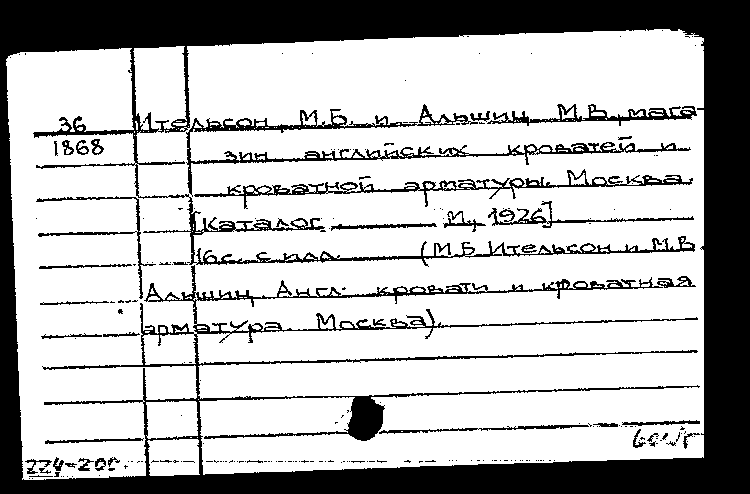 36 Ительсон, М.Б. и Альшиц, М.В., мага-
1868 зин английских кроватей и
кроватной арматуры. Москва.
[Каталог М., 1926]
16 с. с илл. (М.Б. Ительсон и М.В.
Альшиц. Англ. кровати и кроватная
арматура. Москва).
224-200.